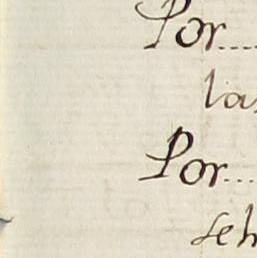 Por....
la
Por...
seh